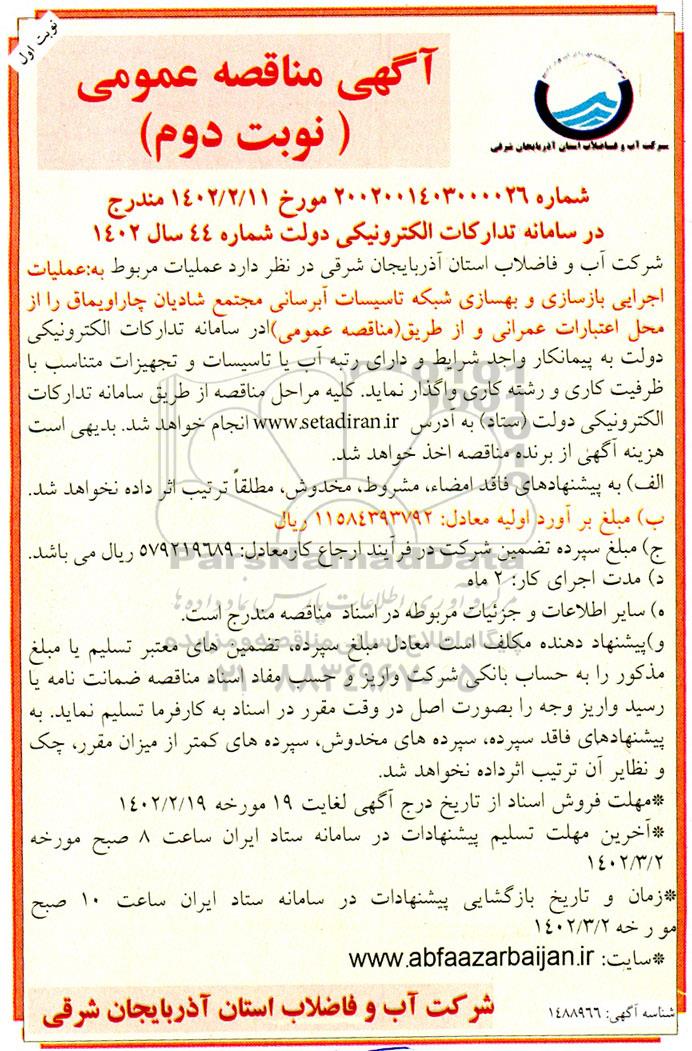 نوبت اول
آگهی مناقصه عمومی
( نوبت دوم)
شرکت آب و فاضلاب استان آذربایجان شرقی
شماره ۲۰۰۲۰۰۱۴۰۳۰۰۰۰۲۶ مورخ ۱۴۰۲/۲/۱۱ مندرج
در سامانه تدارکات الکترونیکی دولت شماره ۴۴ سال ۱۴۰۲
شرکت آب و فاضلاب استان آذربایجان شرقی در نظر دارد عملیات مربوط به:عملیات
اجرایی بازسازی و بهسازی شبکه تاسیسات آبرسانی مجتمع شادیان چاراویماق را از
محل اعتبارات عمرانی و از طریق(مناقصه عمومی)ادر سامانه تدارکات الکترونیکی
دولت به پیمانکار واجد شرایط و دارای رتبه آب یا تاسیسات و تجهیزات متناسب با
ظرفیت کاری و رشته کاری واگذار نماید. کلیه مراحل مناقصه از طریق سامانه تدارکات
الکترونیکی دولت (ستاد) به آدرس www.setadiran.ir انجام خواهد شد. بدیهی است
هزینه آگهی از برنده مناقصه اخذ خواهد شد.
الف) به پیشنهادهای فاقد امضاء، مشروط، مخدوش، مطلقاً ترتیب اثر داده نخواهد شد.
ب) مبلغ بر آورد اولیه معادل: ۱۱۵۸۴۳۹۳۷۹۲ ریال
ج) مبلغ سپرده تضمین شرکت در فرآیند ارجاع کارمعادل: ۵۷۹۲۱۹۶۸۹ ریال می باشد.
ParsNamadData
د) مدت اجرای کار: ۲ ماه
مرکز فرآوری اطلاعات پارس نماد داده ها
ه) سایر اطلاعات و جزئیات مربوطه در اسناد مناقصه مندرج است.
پایگاه اطلاع رسانی مناقصه و مزایده
و)پیشنهاد دهنده مکلف است معادل مبلغ سپرده، تضمین های معتبر تسلیم یا مبلغ
مذکور را به حساب بانکی شرکت واریز و حسب مفاد اسناد مناقصه ضمانت نامه یا
۰۲۱-۸۸۳۴۹۶۷۰-۵
رسید واریز وجه را بصورت اصل در وقت مقرر در اسناد به کارفرما تسلیم نماید. به
پیشنهادهای فاقد سپرده، سپرده های مخدوش، سپرده های کمتر از میزان مقرر، چک
و نظایر آن ترتیب اثرداده نخواهد شد.
*مهلت فروش اسناد از تاریخ درج آگهی لغایت ۱۹ مورخه ۱۴۰۲/۲/۱۹
*آخرین مهلت تسلیم پیشنهادات در سامانه ستاد ایران ساعت ۸ صبح مورخه
۱۴۰۲/۳/۲
*زمان و تاریخ بازگشایی پیشنهادات در سامانه ستاد ایران ساعت ۱۰ صبح
مو ر خه ۱۴۰۲/۳/۲
*سایت: www.abfaazarbaijan.ir
شناسه آگهی: ۱۴۸۸۹۶۶
شرکت آب و فاضلاب استان آذربایجان شرقی